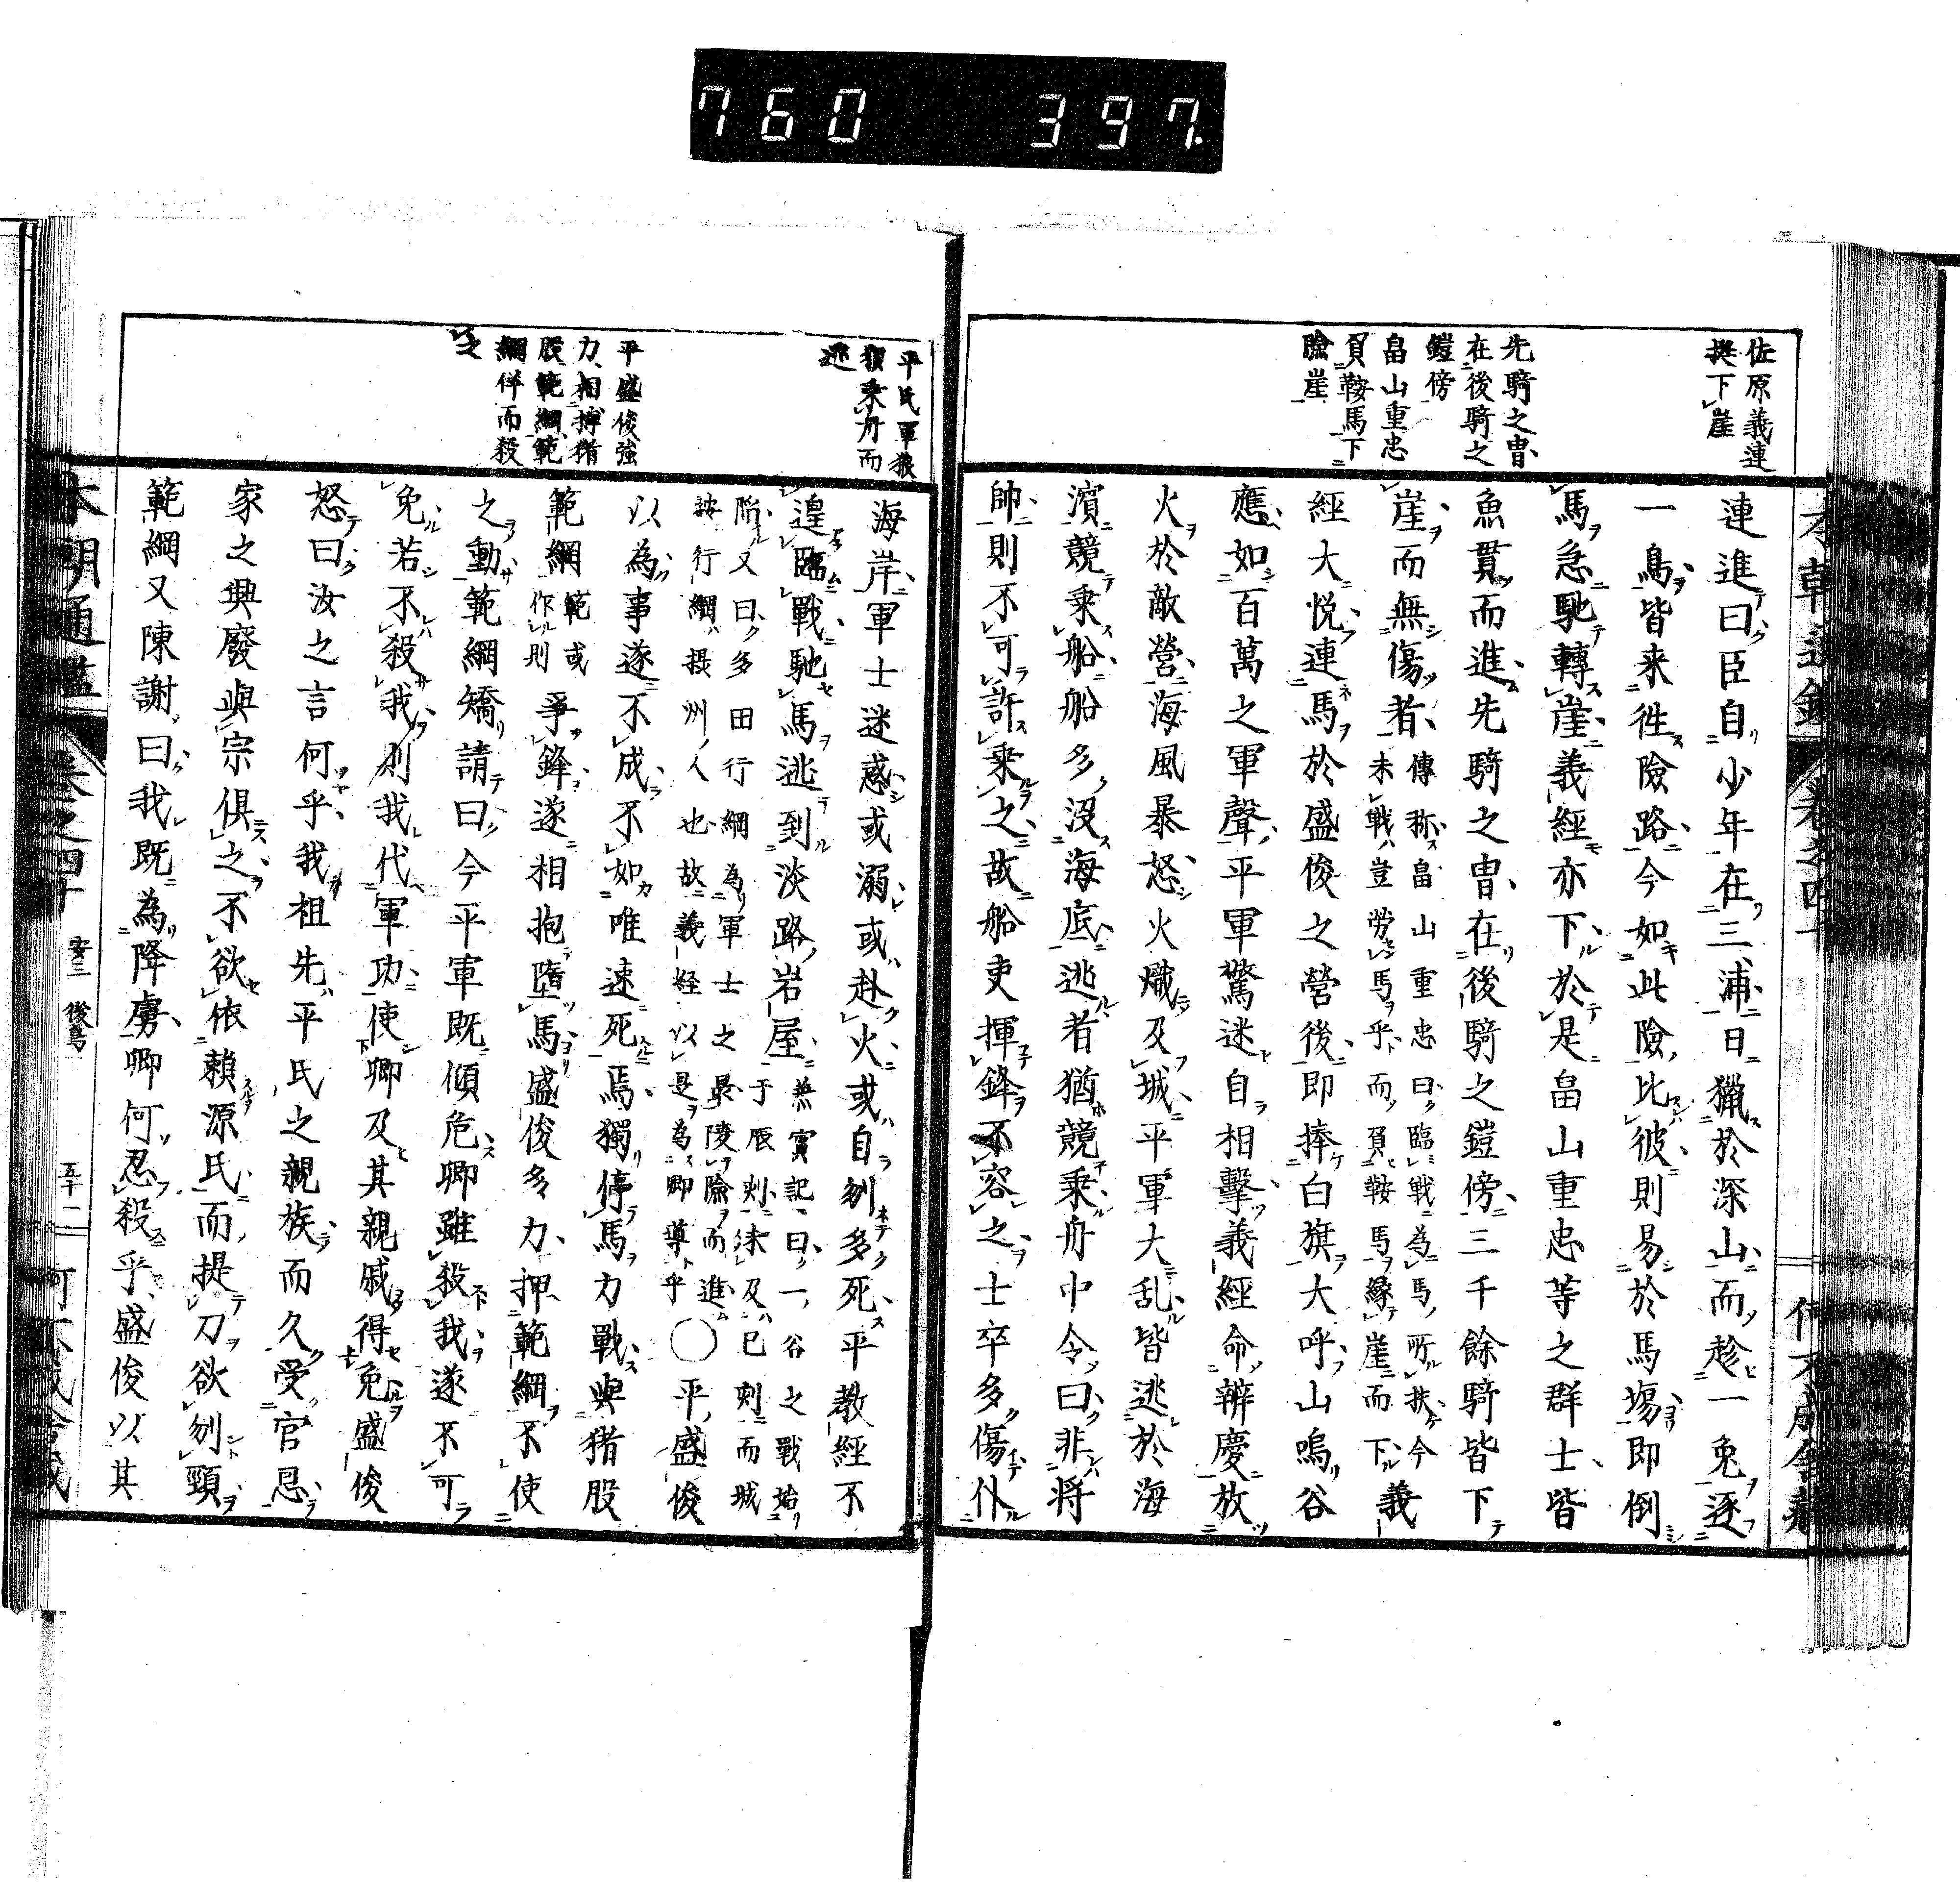 760 397.
佐原義連
提下崖
先騎之冑
在後騎之
鎧傍
畠山重忠
負鞍馬下
險崖
連進曰臣自少年在三浦日獵於深山而趁一兔逐
一鳥皆来徃險路今如此險比彼則易於馬塲即倒
馬急馳轉崖義經亦下於是畠山重忠等之群士皆
魚貫而進先騎之冑在後騎之鎧傍三千餘騎皆下
崖而無傷者傳称畠山重忠曰臨戰為馬所扶今
未戰豈労馬乎而負鞍馬縁崖而下義
經大悦連馬於盛俊之營後即捧白旗大呼山鳴谷
應如百萬之軍聲平軍驚迷自相擊義經命辨慶放
火於敵營海風暴怒火熾及城平軍大乱皆逃於海
濱競乗船船多沒海底逃者猶競乗舟中令曰非将
帥則不可許乗之故船吏揮鋒不容之士卒多傷仆
平氏軍狼
狽乗舟而
逃
平盛俊強
力相摶猪
股範綱範
綱佯而殺
之
海岸軍士迷惑或溺或赴火或自刎多死平教經不
遑臨戰馳馬逃到淡路岩屋兼實記曰一谷之戰始
于辰刻未及巳刻而城
陥又曰多田行綱為軍士之最陵險而進
按行綱摂州人也故義経以是為卿導乎○平盛俊
以為事遂不成不如唯速死焉獨停馬力戰與猪股
範綱範或
作則爭鋒遂相抱墮馬盛俊多力押範綱不使
之動範綱矯請曰今平軍既傾危卿雖殺我遂不可
免若不殺我則我代軍功使卿及其親戚得免盛俊
怒曰汝之言何乎我祖先平氏之親族而久受官恩
家之興廢與宗俱之不欲依賴源氏而提刀欲刎頸
範綱又陳謝曰我既為降虜卿何忍殺乎盛俊以其
本朝通鑑 卷之四十 安三 後鳥 五十二